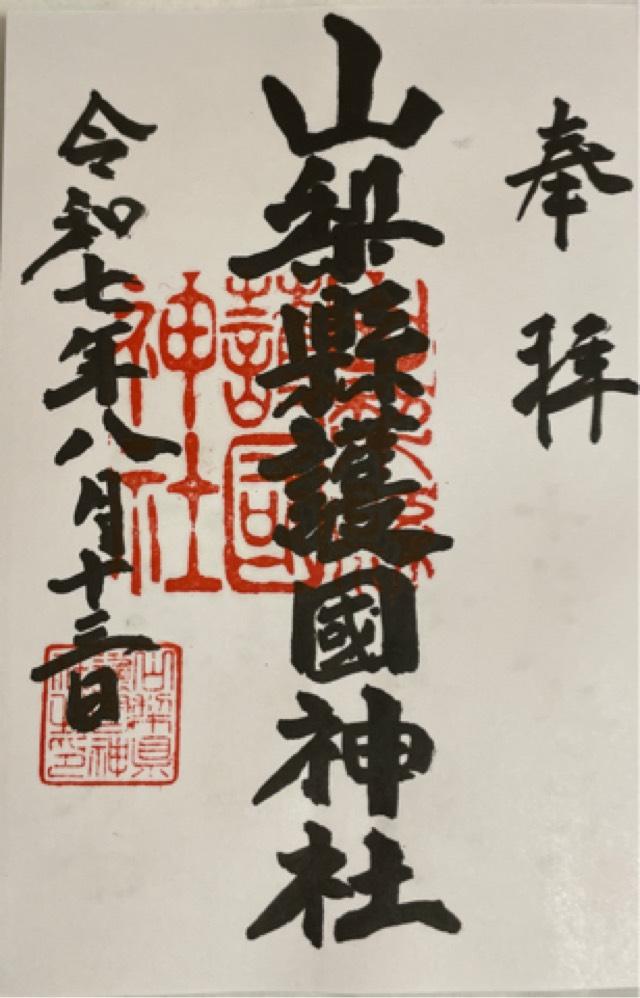 奉拝
山梨縣護國神社
令和七年八月十三日
山梨縣護國神社
山梨県護国神社之印